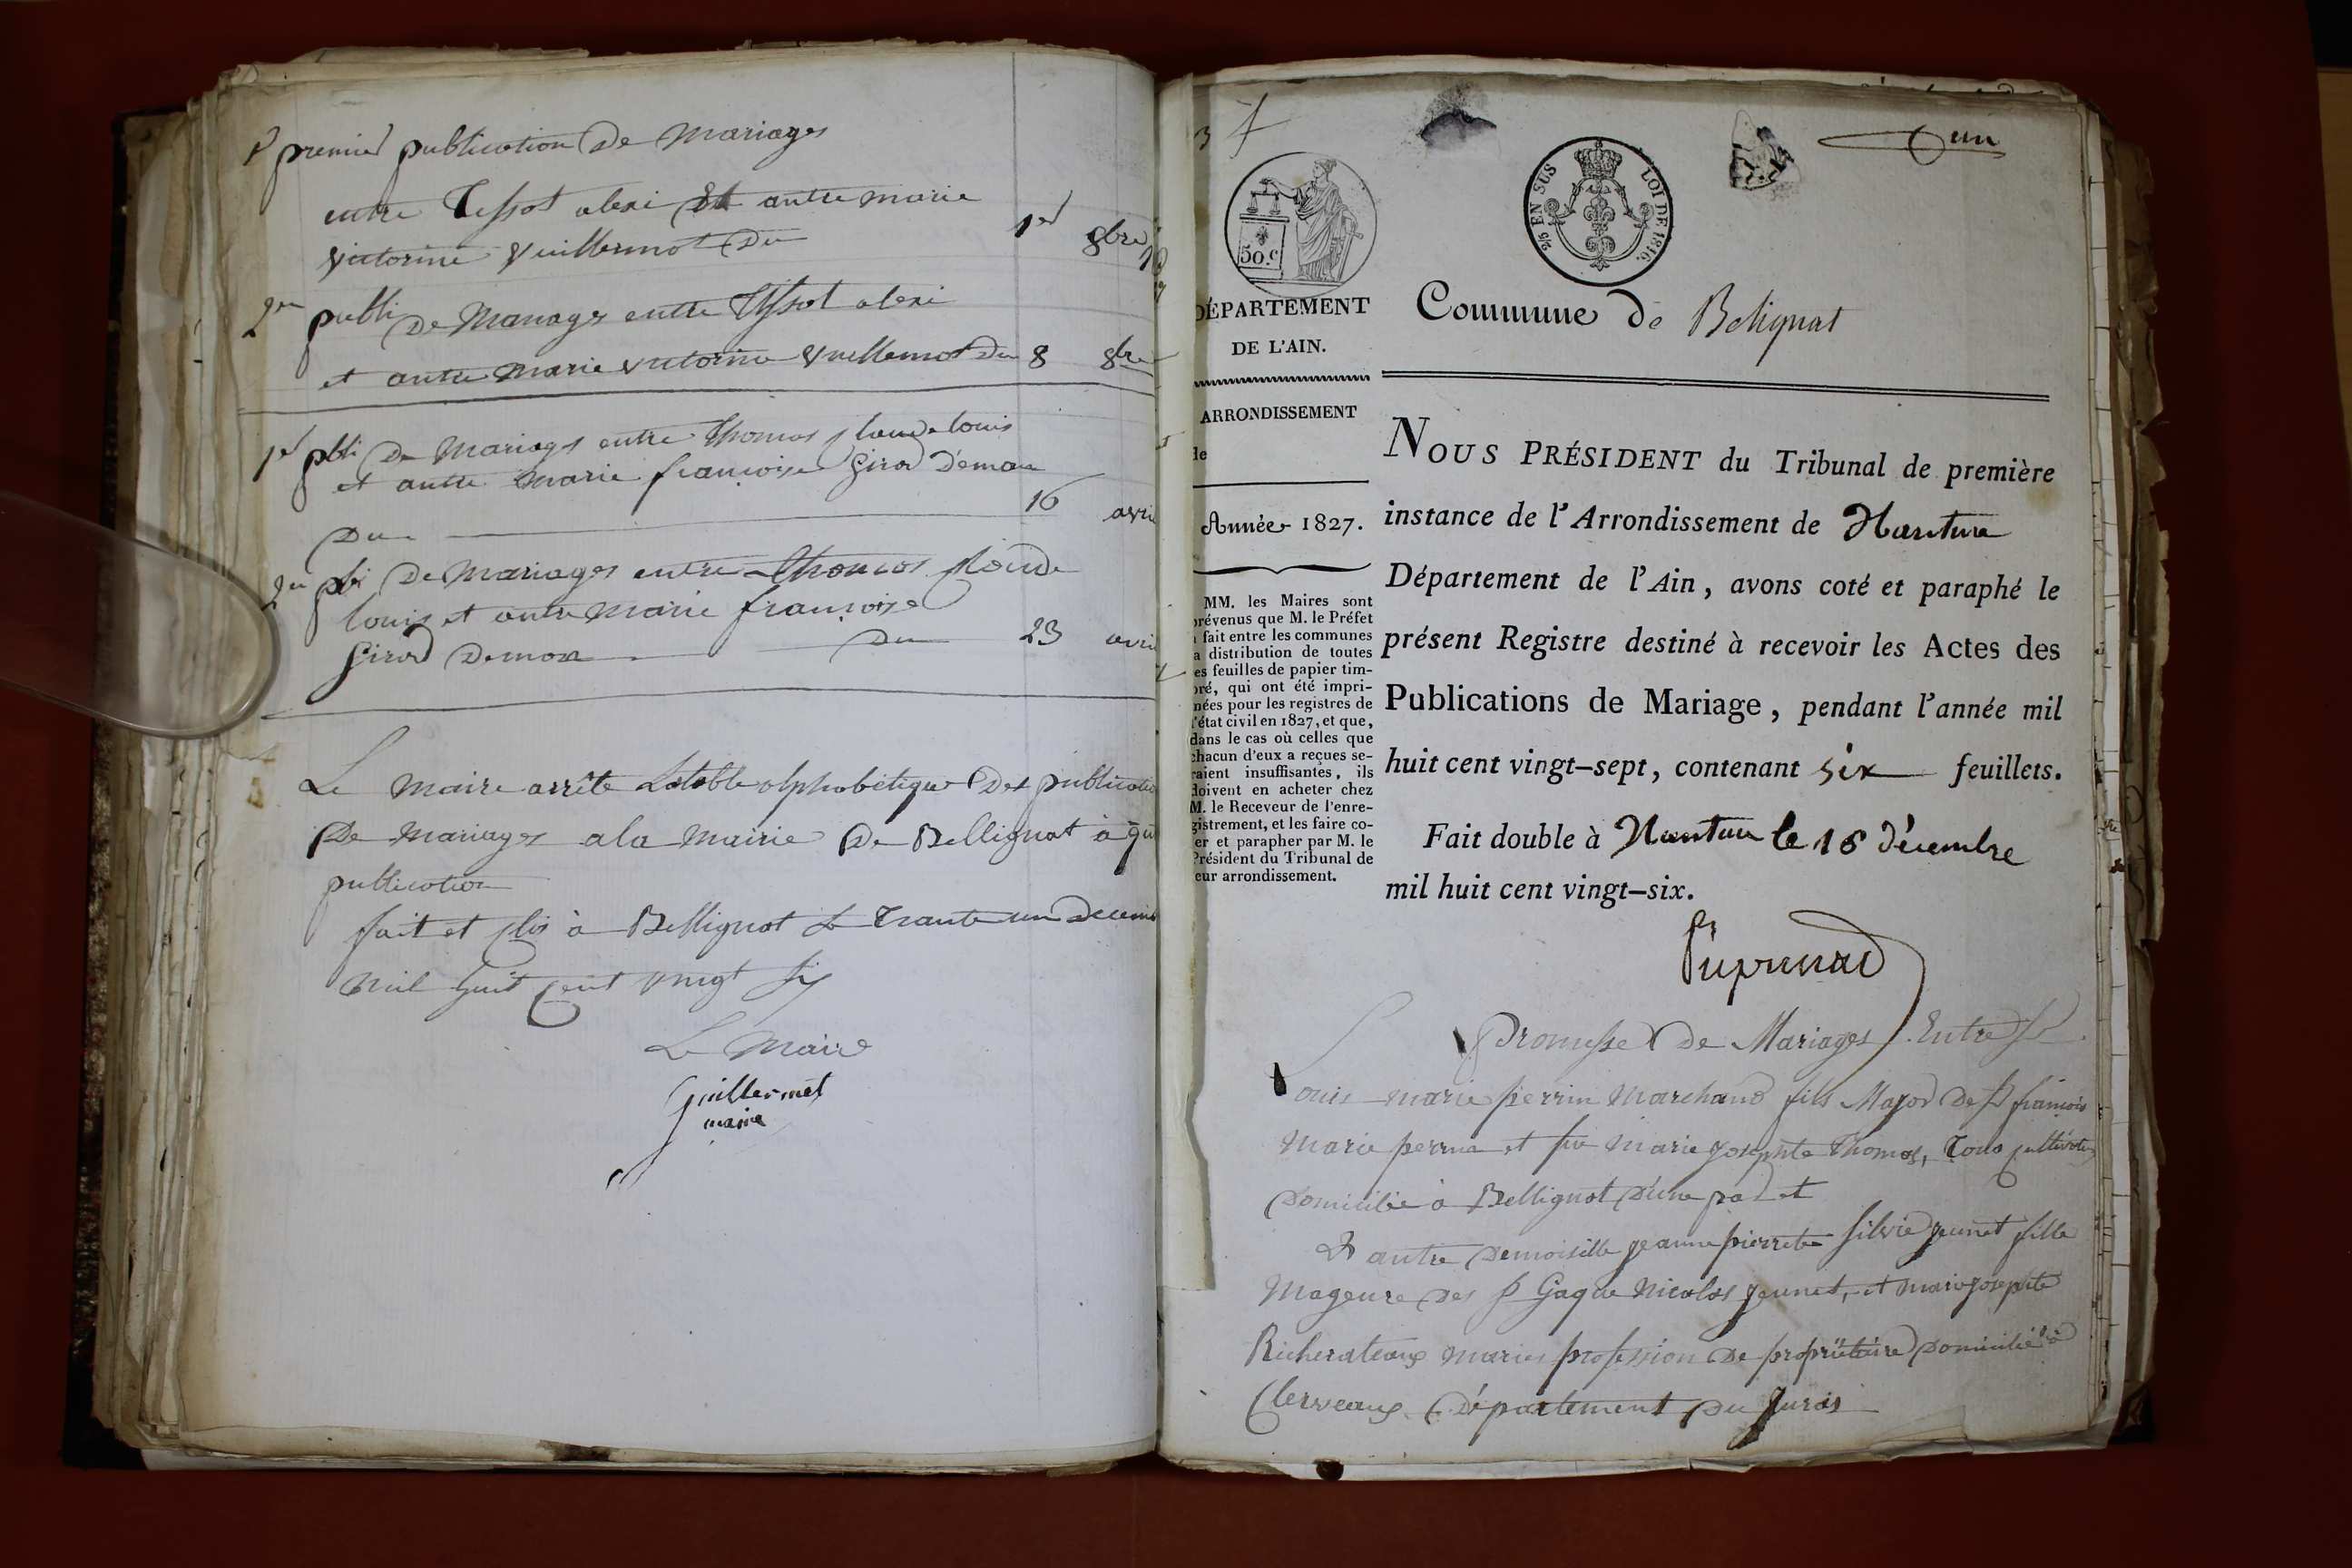 premier publication De Mariages
entre Tissot alexi Et autre marie
victorine Vuillermot Du 1er 8bre
2me publi De Mariages entre Tissot alexi
et autre Marie victorine Vuillermot Du 8 8bre
1er pbli De Mariages entre Thomas Claude louis
et autre Marie françoise Girod Demon
Du 16 avri
2me pbi De Mariages entre Thomas Claude
louis et autre Marie françoise
Girod Demon Du 23 avri
Le Maire arrête La table alphabétique Des publicatio
De Mariages a la Mairie De Bellignat à
publication
fait et clos à Bellignat Le Trante un Decem
Mil huit Cent vingt six
Le Maire
Guillermet
maire
un
50.c
2/5 EN SUS LOI DE 1816.
DÉPARTEMENT
DE L'AIN.
ARRONDISSEMENT
de
Année 1827.
MM. les Maires sont
prévenus que M. le Préfet
fait entre les communes
a distribution de toutes
es feuilles de papier tim-
bré, qui ont été impri-
mées pour les registres de
l'état civil en 1827, et que,
dans le cas où celles que
chacun d'eux a reçues se-
raient insuffisantes, ils
doivent en acheter chez
M. le Receveur de l'enre-
gistrement, et les faire co-
er et parapher par M. le
Président du Tribunal de
eur arrondissement.
Commune de Belignat
NOUS PRÉSIDENT du Tribunal de première
instance de l'Arrondissement de Nantua
Département de l'Ain, avons coté et paraphé le
présent Registre destiné à recevoir les Actes des
Publications de Mariage, pendant l'année mil
huit cent vingt-sept, contenant six feuillets.
Fait double à Nantua le 16 décembre
mil huit cent vingt-six.
Promesse De Mariages Entre Sr
Louis marie perrin Marchand fils Major De Sr françois
Marie perrin et feu Marie Josephte Thomas, Tous cultivate
Domicilié à Bellignat D'une part
Et autre Demoiselle Jeanne pierrette Silvie Jeunet fille
Mageure Des Sr Gaque Nicolas Jeunet, et Marie Josephte
Richerateaux Maries profession De propriétaire Domicilié à
Clerveaux Département Du Juras